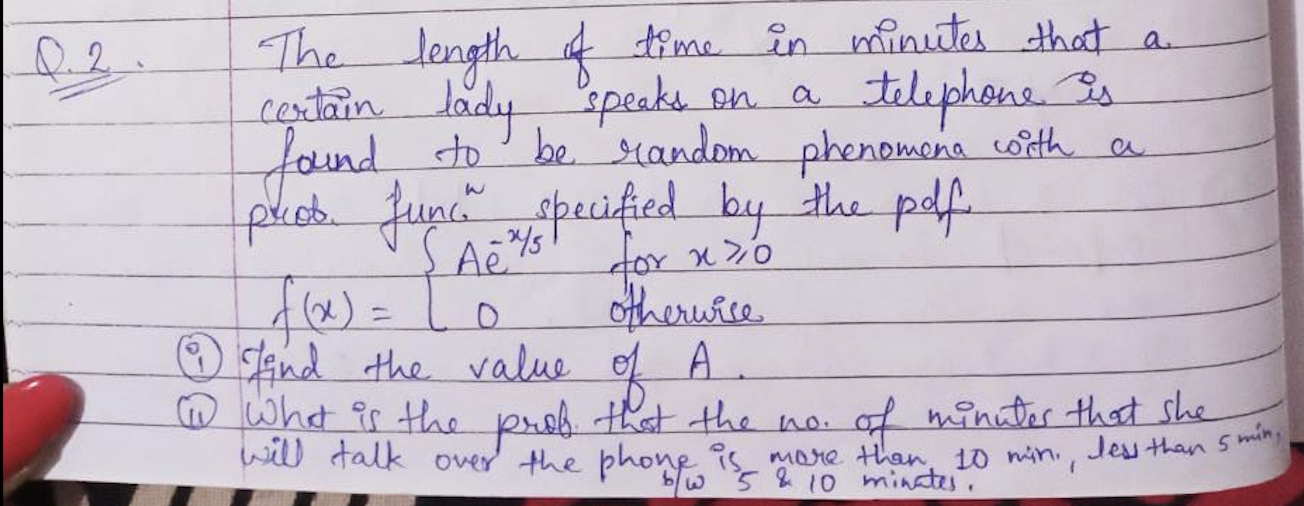 Q.2. The length of time in minutes that a
certain lady speaks on a telephone is
found to be random phenomena with a
prob. funcⁿ specified by the pdf
f(x) = { Ae^{-x/5} for x ≥ 0
0 otherwise
(i) Find the value of A.
(ii) What is the prob. that the no. of minutes that she
will talk over the phone is more than 10 min., less than 5 min,
b/w 5 & 10 minutes.